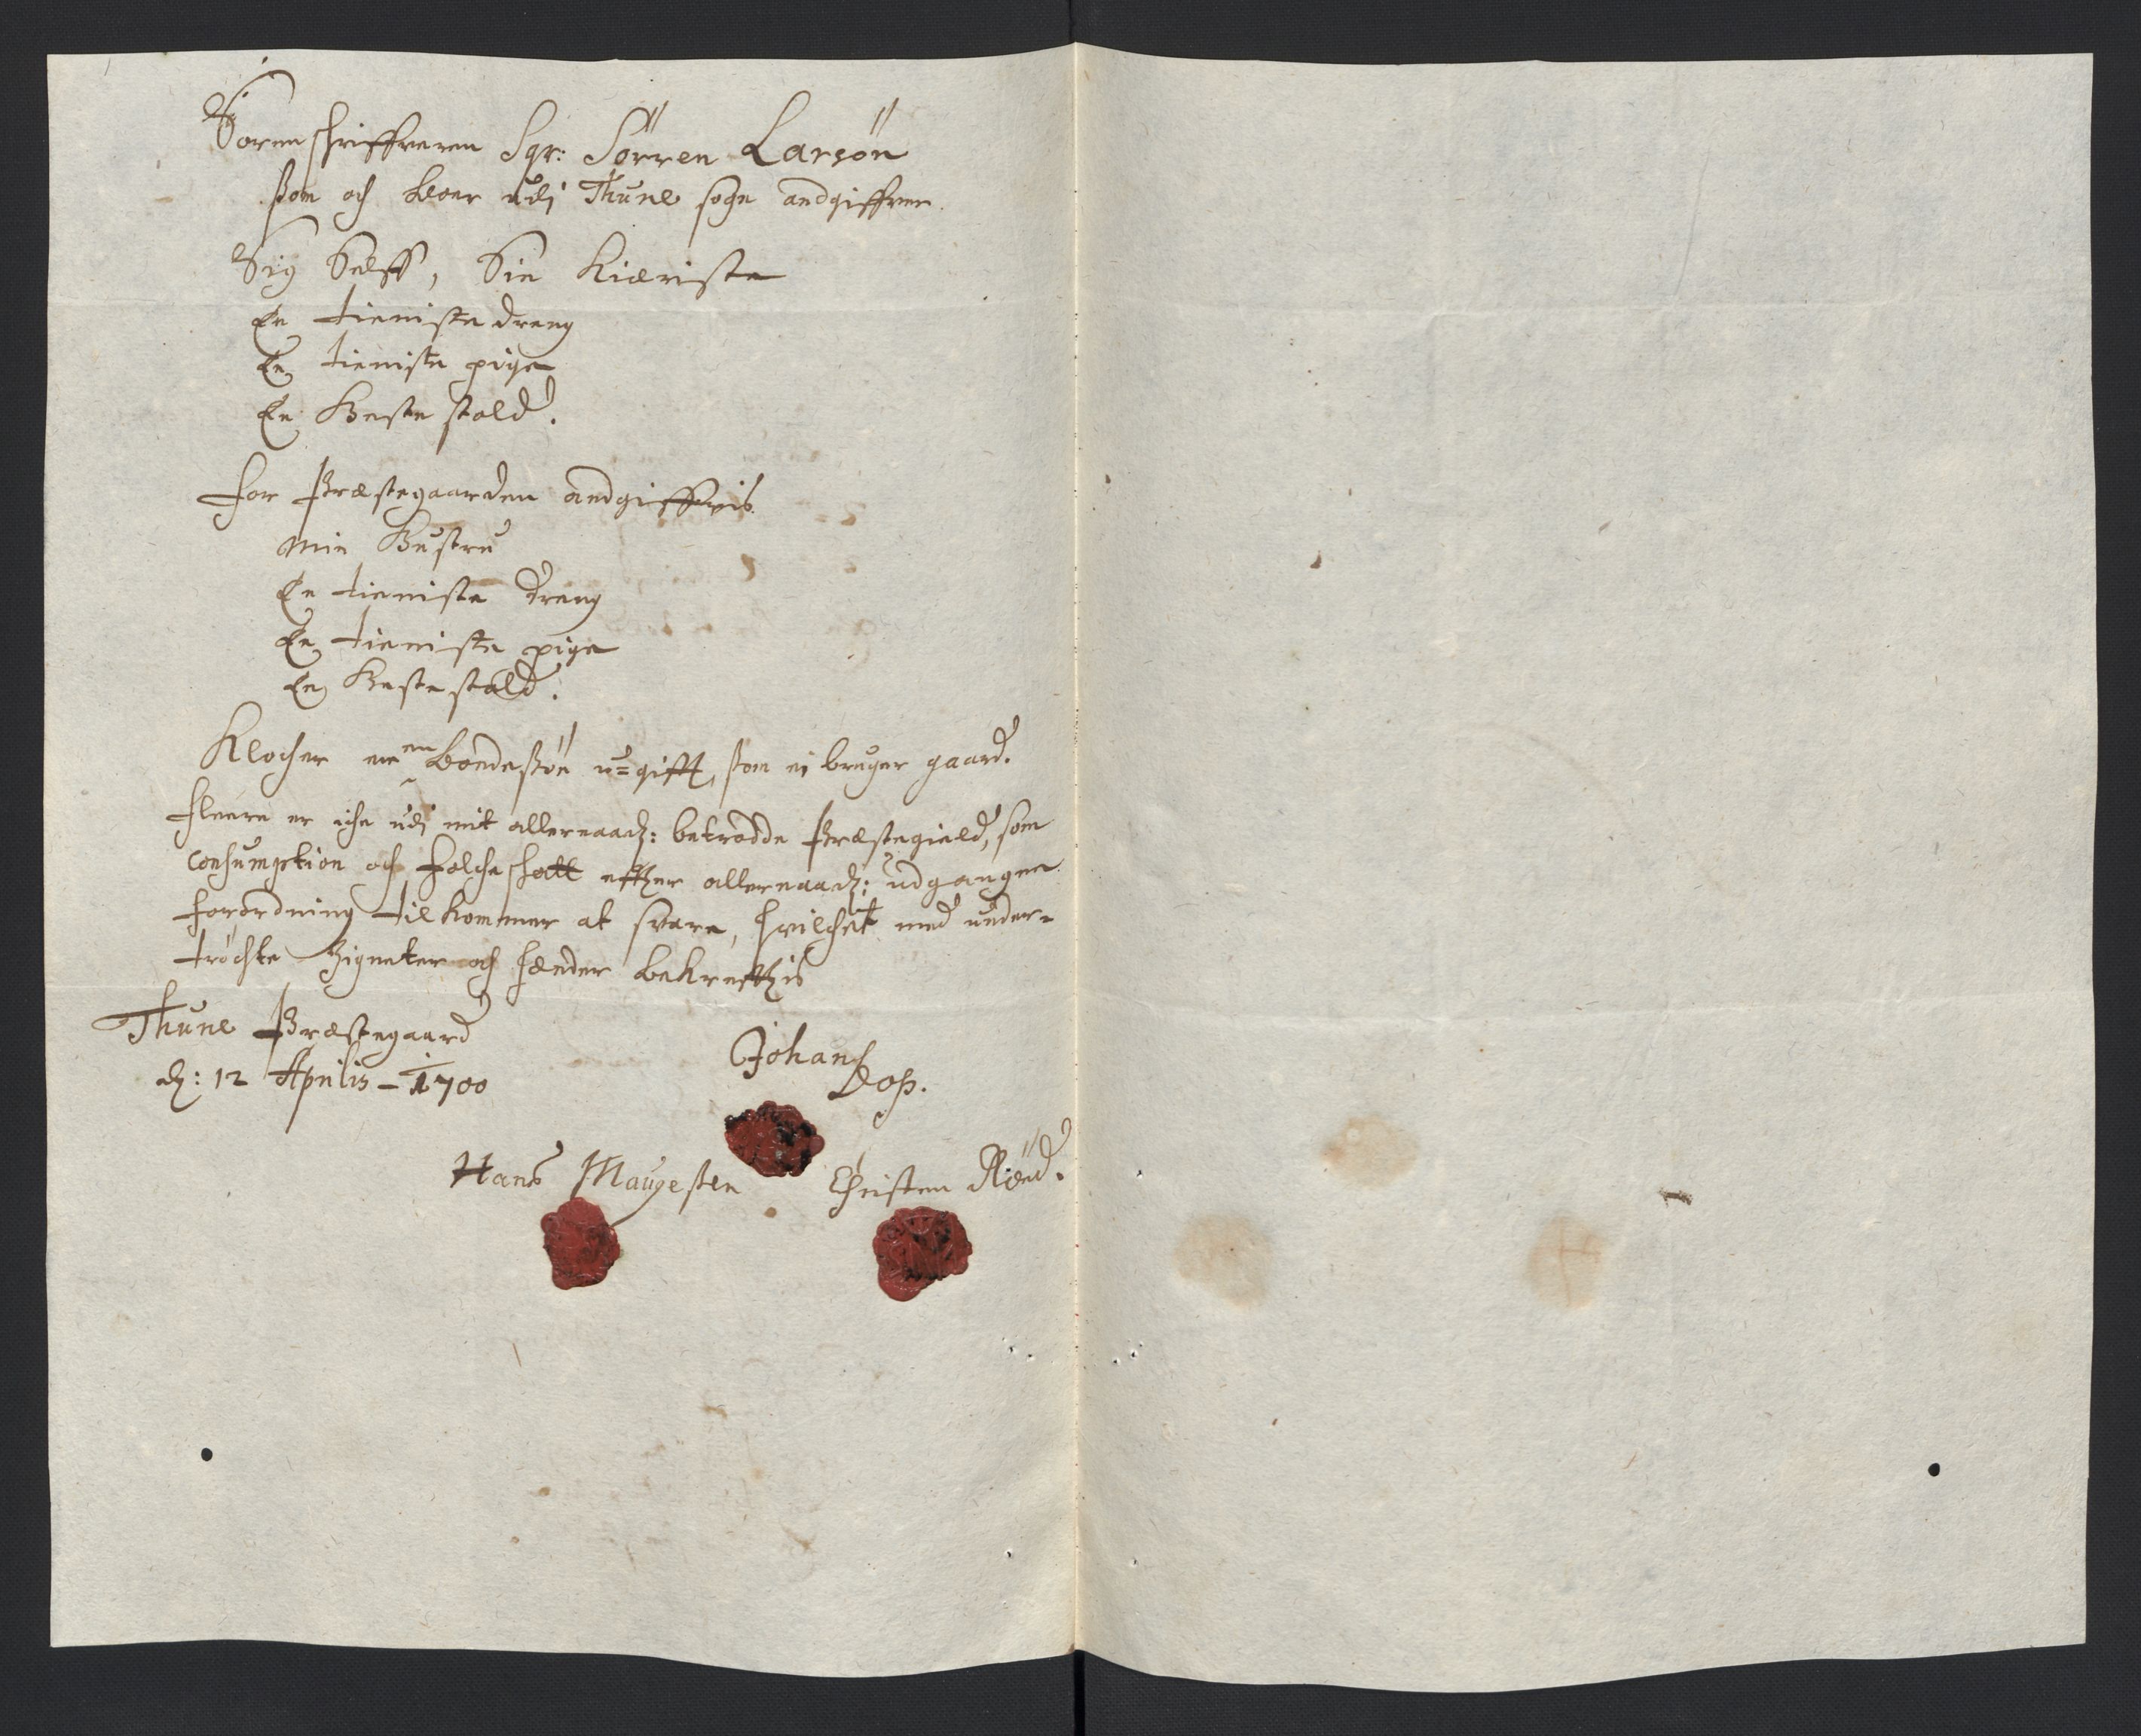 Sorenschriffveren Sgr: Sörren Larsön
ßom og boer udj Thune sogn andgiffver
Sig Selff, Sin Kiæriste
En tieniste dreng
En tieniste pige
En Heste stald.
for Præstegaarden andgiffvis
min Hustru
En tieniste dreng
En tieniste pige
En Hestestald.
Klocher er en bondesön u=gifft, ßom ej bruger gaard.
fleere er iche udj mit allernaad: betrodde Præstegield, som
Consumption och folcheskatt effter allernaad: udgangne
forordning tilkommer at svare, hvilchet med under-
tröchte Zigneter och hænder bekrefftis
Thune Præstegaard
d: 12 Aprilis - 1700
Johan
Doß.
Hans Maugesten Christen Röed.